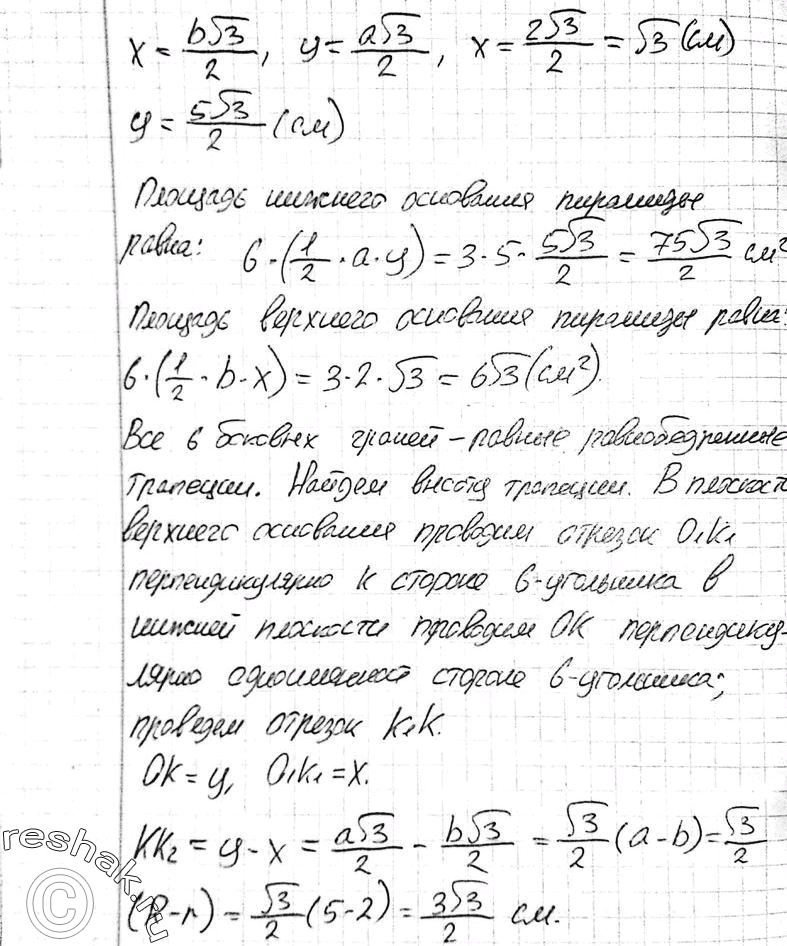 x = b√3/2, y = a√3/2, x = 2√3/2 = √3 (см)
y = 5√3/2 (см)
Площадь нижнего основания пирамиды
равна: 6·(1/2·a·y) = 3·5·5√3/2 = 75√3/2 см²
Площадь верхнего основания пирамиды равна:
6·(1/2·b·x) = 3·2·√3 = 6√3 (см²).
Все 6 боковых граней – равные равнобедренные
трапеции. Найдем высоту трапеции. В плоскост
верхнего основания проводим отрезок O₁K₁
перпендикулярно к стороне 6-угольника в
нижней плоскости проводим OK перпендику-
лярно одноименной стороне 6-угольника;
проведем отрезок K₁K.
OK = y, O₁K₁ = x.
KK₂ = y - x = a√3/2 - b√3/2 = √3/2 (a - b) = √3/2
(R - r) = √3/2 (5 - 2) = 3√3/2 см.
reshak.ru
©